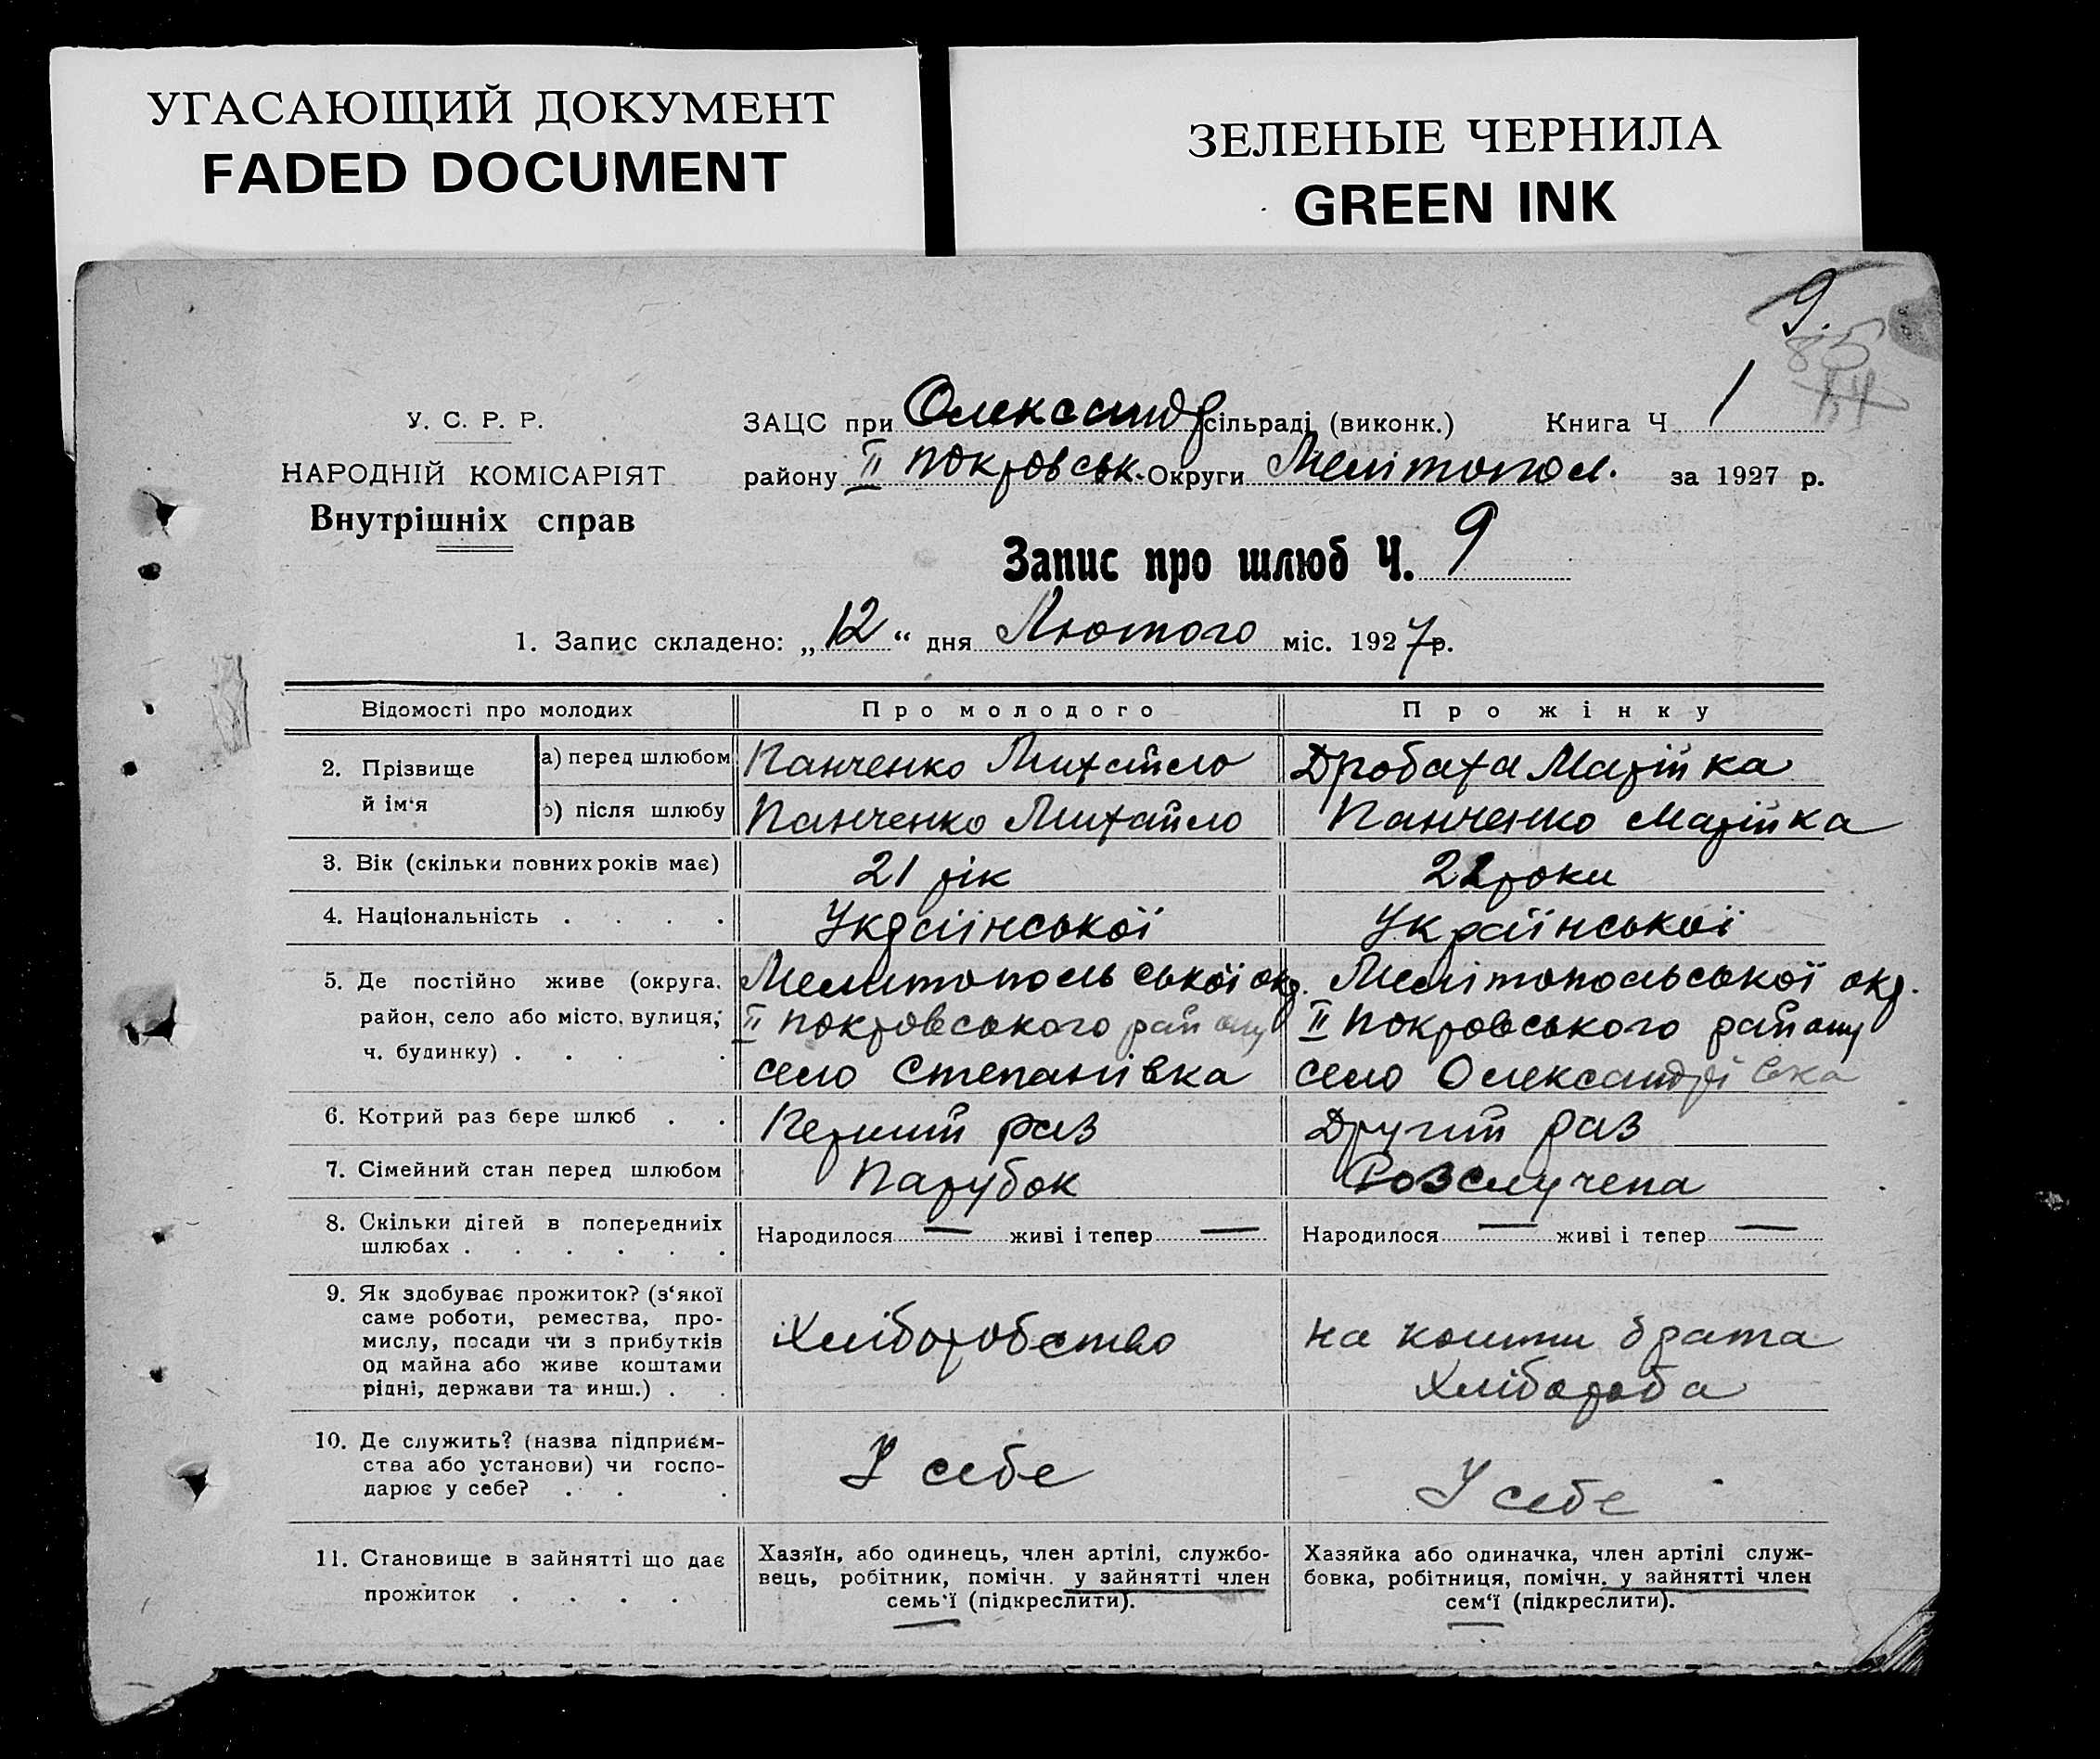 УГАСАЮЩИЙ ДОКУМЕНТ
FADED DOCUMENT
ЗЕЛЕНЫЕ ЧЕРНИЛА
GREEN INK
9.
85
У. С. Р. Р.
НАРОДНІЙ КОМІСАРІЯТ
Внутрішніх справ
ЗАЦС при Олександр сільраді (виконк.) Книга Ч 1
району ІІ Покровськ. Округи Мелітопол. за 1927 р.
Запис про шлюб Ч. 9
1. Запис складено: „12“ дня Лютого міс. 1927 р.
Відомості про молодих
Про молодого
Про жінку
2. Прізвище й ім‘я
а) перед шлюбом
Панченко Михайло
Дробаха Марійка
б) після шлюбу
Панченко Михайло
Панченко Марійка
3. Вік (скільки повних років має)
21 рік
22 роки
4. Національність . . . .
Української
Української
5. Де постійно живе (округа,
район, село або місто, вулиця,
ч. будинку) . . . .
Мелитопольської окр.
ІІ Покровського району
село Степанівка
Мелітопольської окр.
ІІ Покровського району
село Олександрівка
6. Котрий раз бере шлюб . .
Перший раз
Другий раз
7. Сімейний стан перед шлюбом
Парубок
Розлучена
8. Скільки дітей в попередниіх
шлюбах . . . . . .
Народилося — живі і тепер —
Народилося — живі і тепер —
9. Як здобуває прожиток? (з‘якої
саме роботи, ремества, про-
мислу, посади чи з прибутків
од майна або живе коштами
рідні, держави та инш.) . .
Хліборобство
на кошти брата
Хлібороба
10. Де служить? (назва підприєм-
ства або установи) чи госпо-
дарює у себе? . . .
У себе
У себе
11. Становище в зайнятті що дає
прожиток . . . . .
Хазяїн, або одинець, член артілі, службо-
вець, робітник, помічн. у зайнятті член
семь‘ї (підкреслити).
Хазяйка або одиначка, член артілі служ-
бовка, робітниця, помічн. у зайнятті член
сем‘ї (підкреслити).